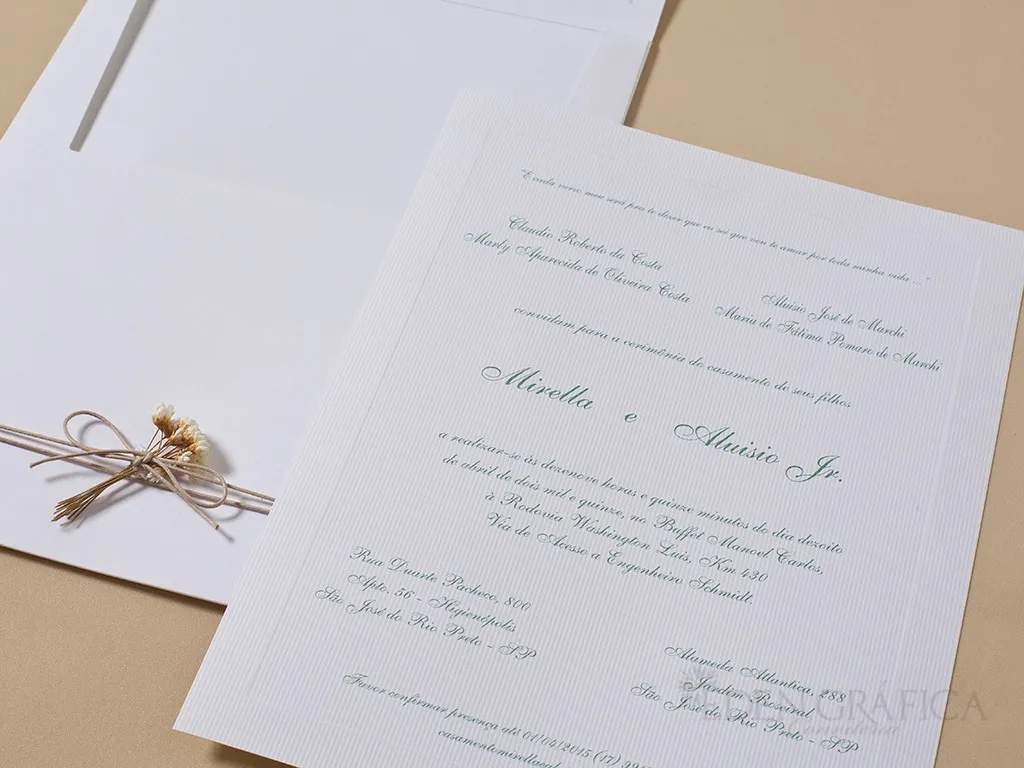 "E cada verso meu será pra te dizer que eu sei que vou te amar por toda minha vida ... "
Claudio Roberto da Costa
Marly Aparecida de Oliveira Costa
Aluisio José de Marchi
Maria de Fátima Pomaro de Marchi
convidam para a cerimônia do casamento de seus filhos
Mirella e Aluisio Jr.
a realizar-se às dezenove horas e quinze minutos do dia dezoito
de abril de dois mil e quinze, no Buffet Manoel Carlos,
à Rodovia Washington Luís, Km 430
Via de Acesso a Engenheiro Schmidt.
Rua Duarte Pacheco, 800
Apto. 56 - Higienópolis
São José do Rio Preto - SP
Alameda Atlantica, 288
Jardim Roseiral
São José do Rio Preto - SP
Favor confirmar presença até 01/04/2015 (17)
GRÁFICA